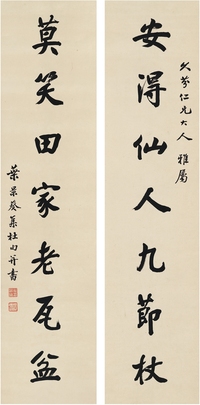 久芬仁兄大人 雅屬
安得仙人九節杖
莫笑田家老瓦盆
葉景葵集杜句并書